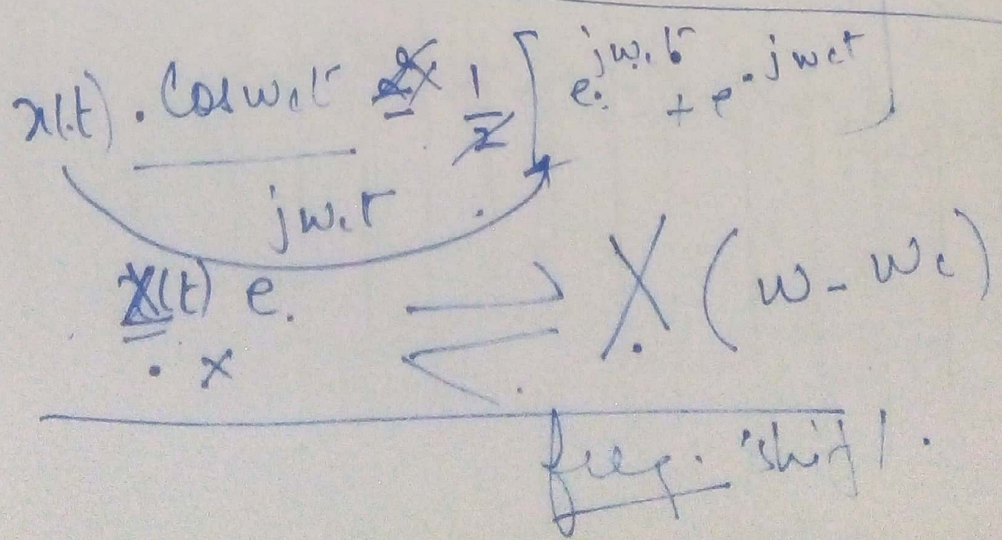 x(t) . Cos wct 1/2 [ e^jwct + e^-jwct ]
x(t) e^jwct ⇌ X(w - wc)
x
freq. shift.